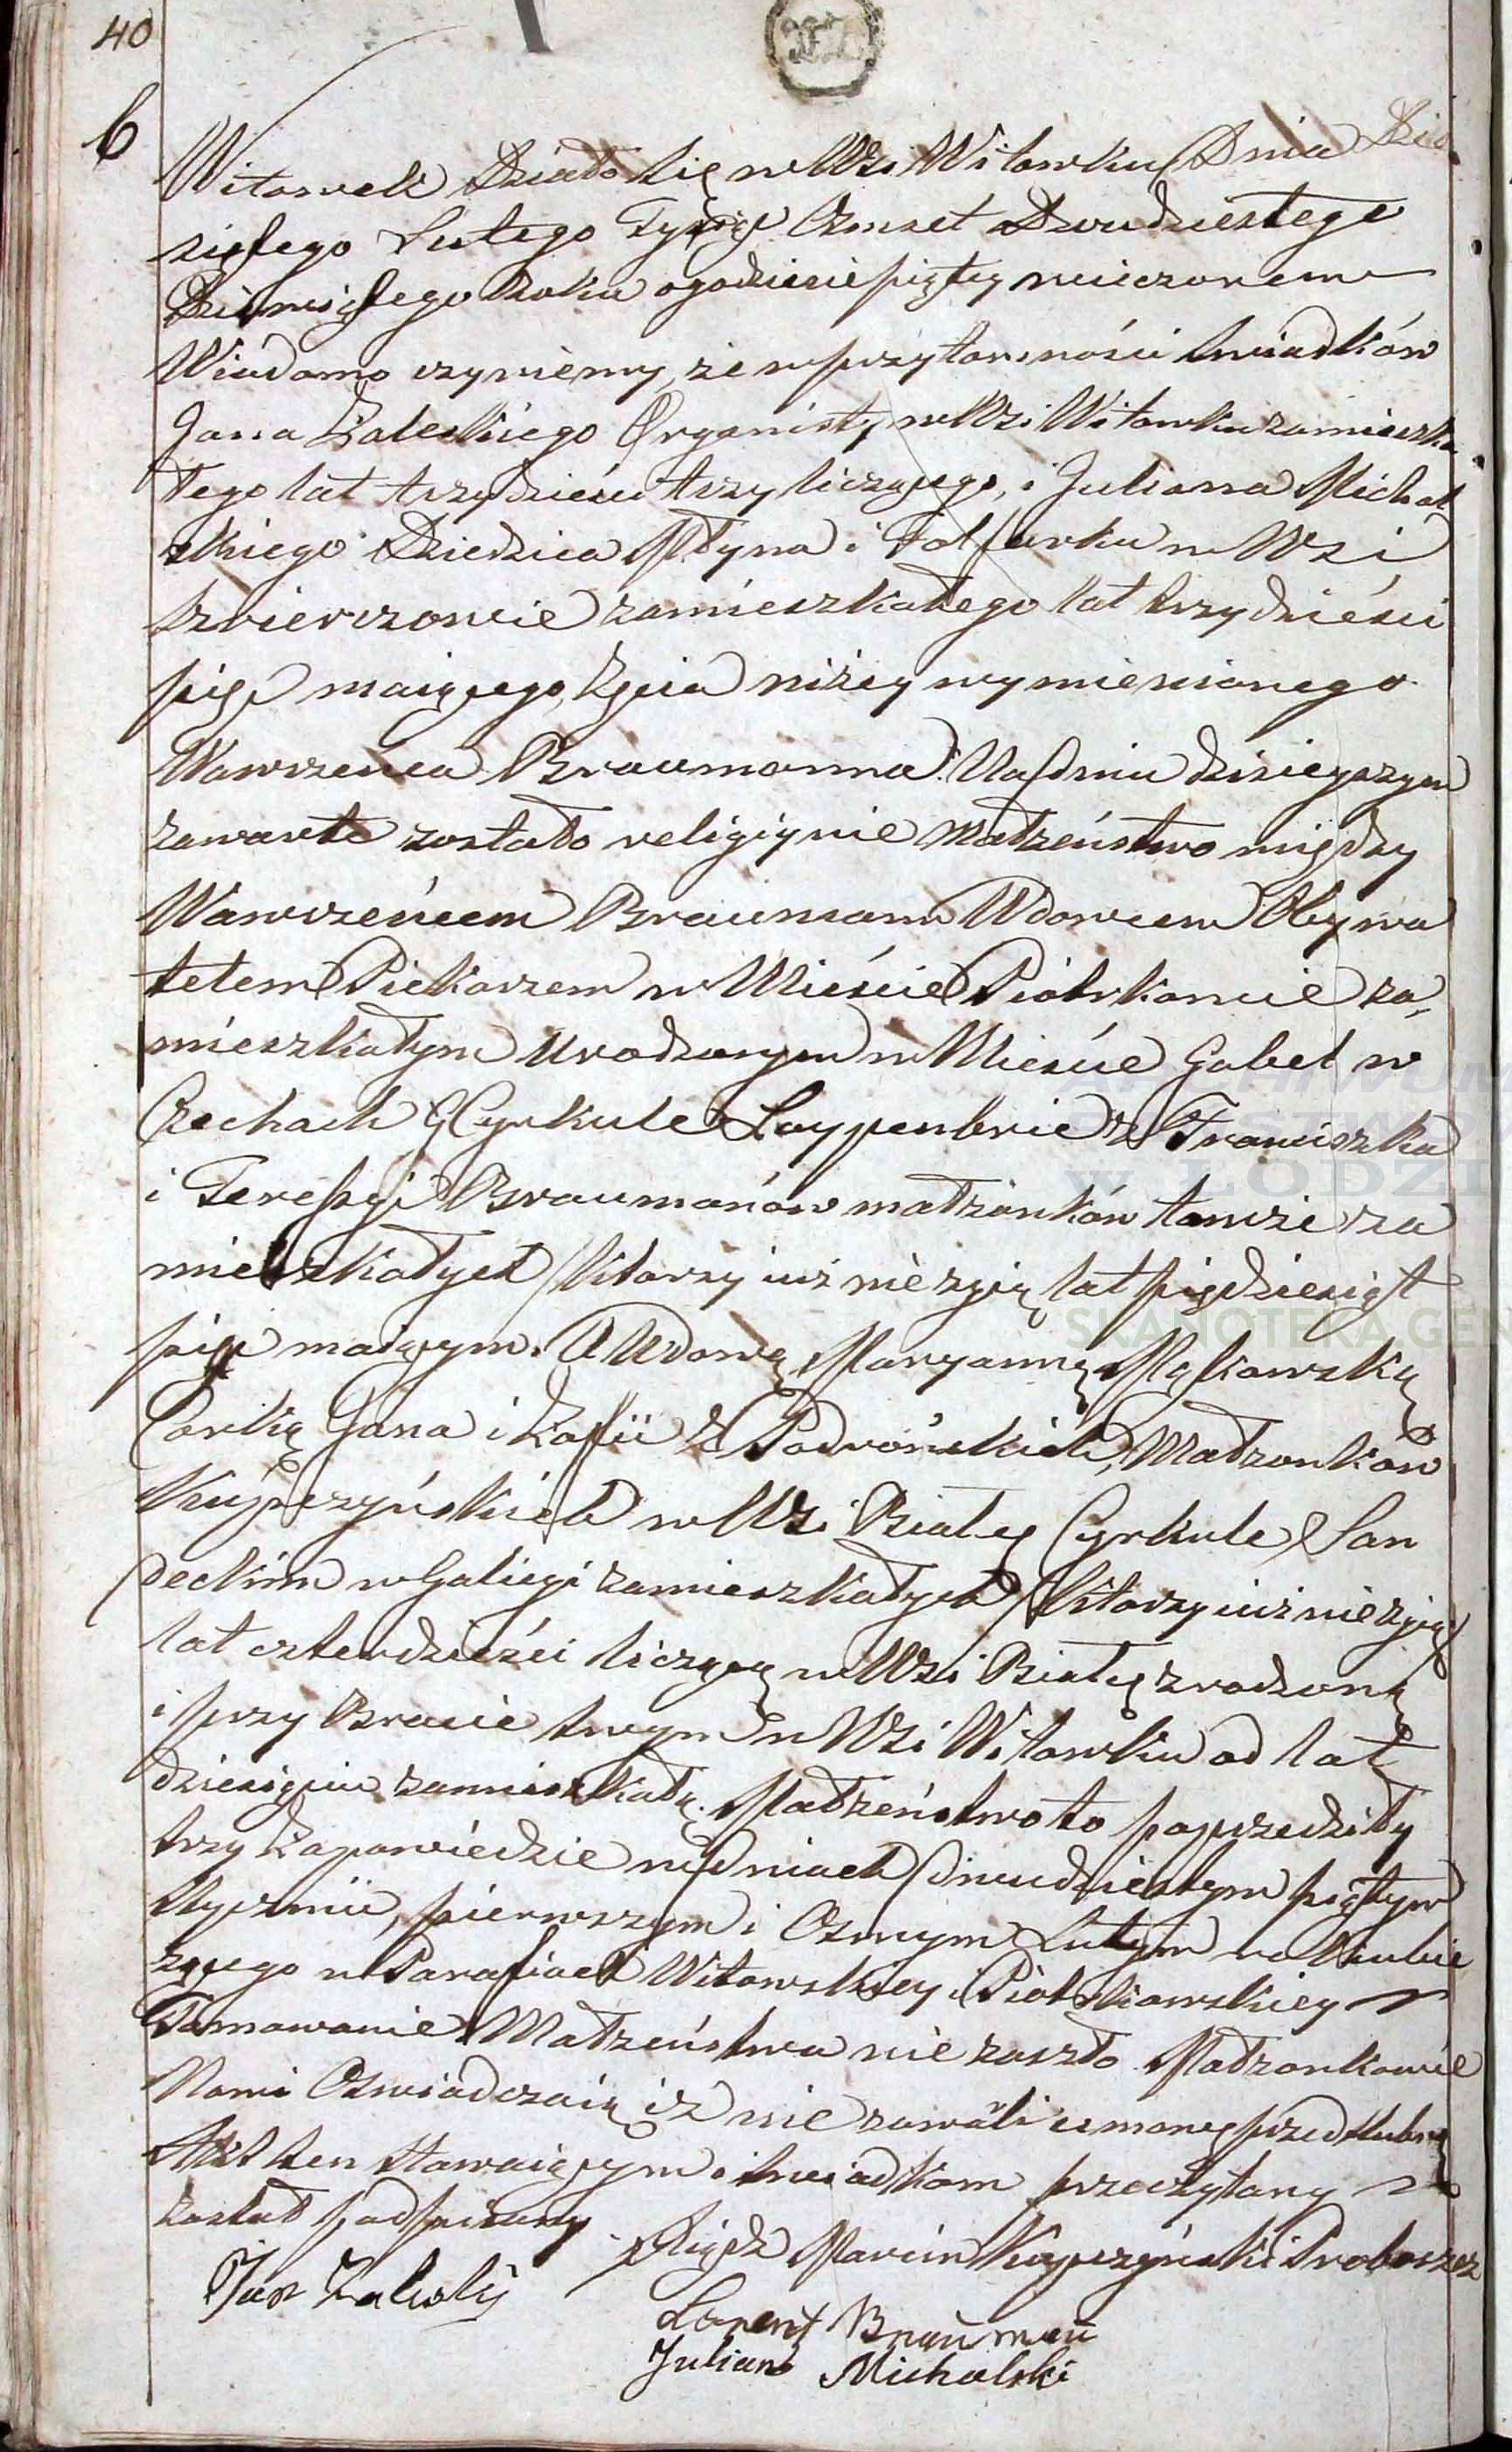 40
6
Witowek Działo się w Wsi Witowku Dnia Dzie
siątego Lutego Tysiąc Osmset Dwudziestego
Dziewiątego Roku o godzinie piątey wieczorem
Wiadomo czyniemy, że w przytomności Swiadków
Jana Zaleskiego Organisty w Wsi Witowku zamieszka
łego lat trzydzieści trzy liczącego, i Juliana Michal
skiego Dziedzica Młyna i Folwarku w Wsi
zamieszkałego lat trzydzieści
pięć maiącego, Zięcia niżey wymienionego
Wawrzeńca Braumanna. Na dniu dzisieyszym
zawarte zostało religiynie Małżeństwo między
Wawrzeńcem Braumann Wdowcem Obywa
telem Piekarzem w Mieście Piotrkowie za,
mieszkałym urodzonym w Mieście Gabel w
Czechach Cyrkule Laypenbrie z Franciszka
i Tereszyi Braumanów małżonków tamże za
mieszkałych /którzy iuż nie żyią/ lat pięćdziesiąt
pięć maiącym. A Wdową Maryanną Mąkowską
Corką Jana i Zofii z Małzonków
Kupczyńskich w Wsi Białey Cyrkule San
deckim w Galicyi zamieszkałych /którzy iuż nie żyią/
lat czterdzieści liczącą w Wsi Białey zrodzoną
i przy Bracie swym w Wsi Witowku od lat
dziesięciu zamieszkałą. Małżeństwo to poprzedziły
trzy Zapowiedzie w dniach dwudziestym piątym
Stycznia, pierwszym i Osmym Lutym roku bie
żącego w Parafiach Witowskiey i Piotrkowskiey
Tamowanie Małżeństwa nie zaszło Małżonkowie
Nowi Oświadczaią iż nie zawarli umowy przedślubney
Akt ten Stawaiącym i Swiadkom przeczytany
został podpisany.
Xiądz Marcin Kupczyński Proboszcz
Jan Zaleski
Lorenz Brauman
Julian Michalski
ARCHIWUM
w ŁODZI
SKANOTEKA GEN